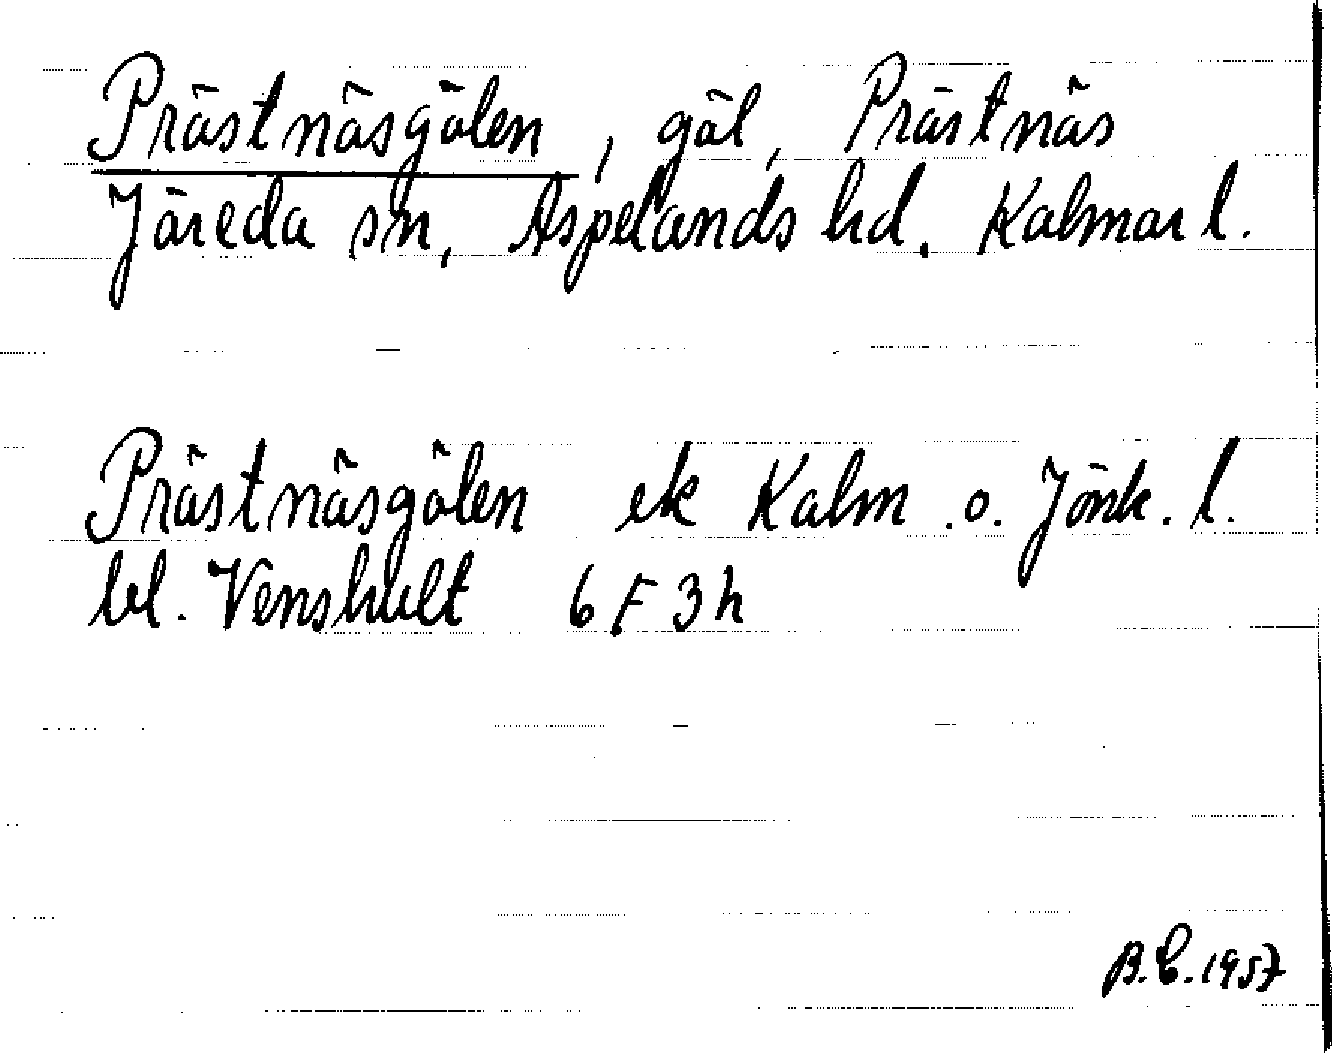 Prästnäsgölen, göl, Prästnäs
Järeda sn, Aspelands hd. Kalmar l.
Prästnäsgölen ek Kalm. o. Jönk. l.
bl. Venshult 6 F 3 h
B.C. 1957